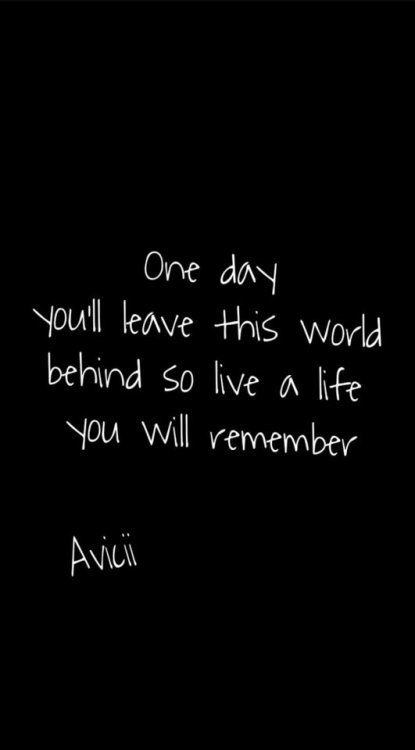 One day
you'll leave this world
behind so live a life
you will remember
Avicii